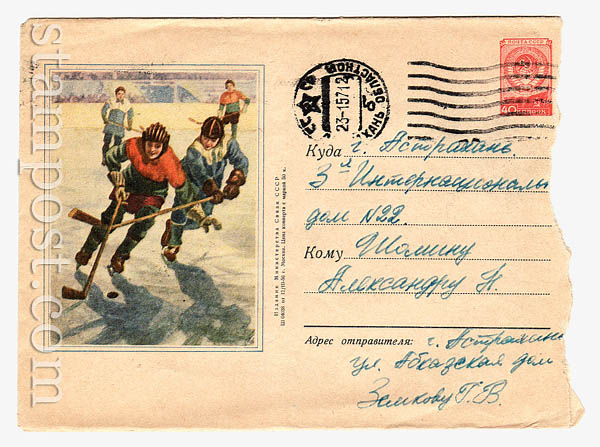 ПОЧТА СССР
40 КОПЕЕК
СССР
23-1 57 12
ОБЛАСТНОЙ
Куда г. Астрахань
3й Интернациональн
дом №22.
Кому Шомину
Александру Н.
Адрес отправителя: г. Астрахань
ул. Абхазская дом
Земкову Г. В.
Издание Министерства Связи СССР
г. Москва. Цена конверта с маркой 50 к.
stampost.com